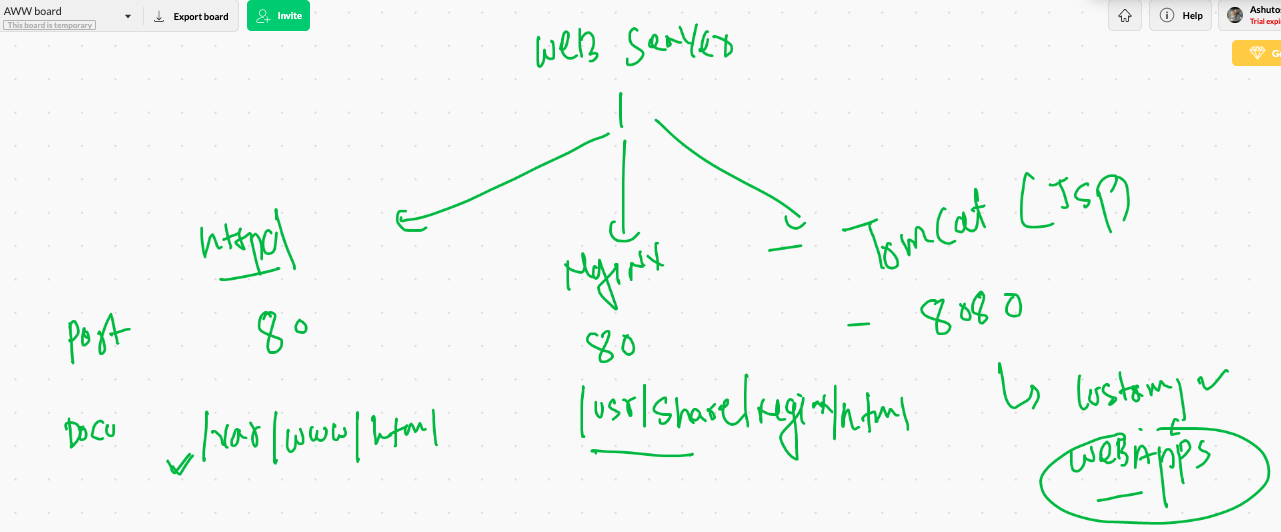 AWW board
This board is temporary
Export board
Invite
Help
Ashuto
Trial expi
G
WEB Server
httpd
Nginx
TomCat (JSP)
Port 80
80
8080
Docu /var/www/html
/usr/share/nginx/html
Custom
WEBApps